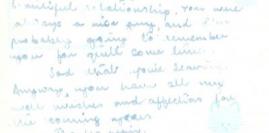 beautiful relationship. You were
always a nice guy, and I'm
probably going to remember
you for quite some time.
Sad that you're leaving
Anyway, you have all my
well wishes and affection for
the coming years